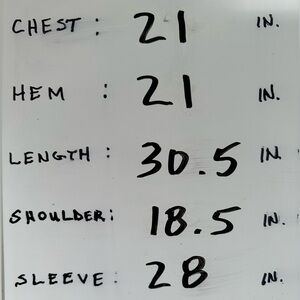 CHEST : 21 IN.
HEM : 21 IN.
LENGTH : 30.5 IN.
SHOULDER: 18.5 IN.
SLEEVE: 28 IN.